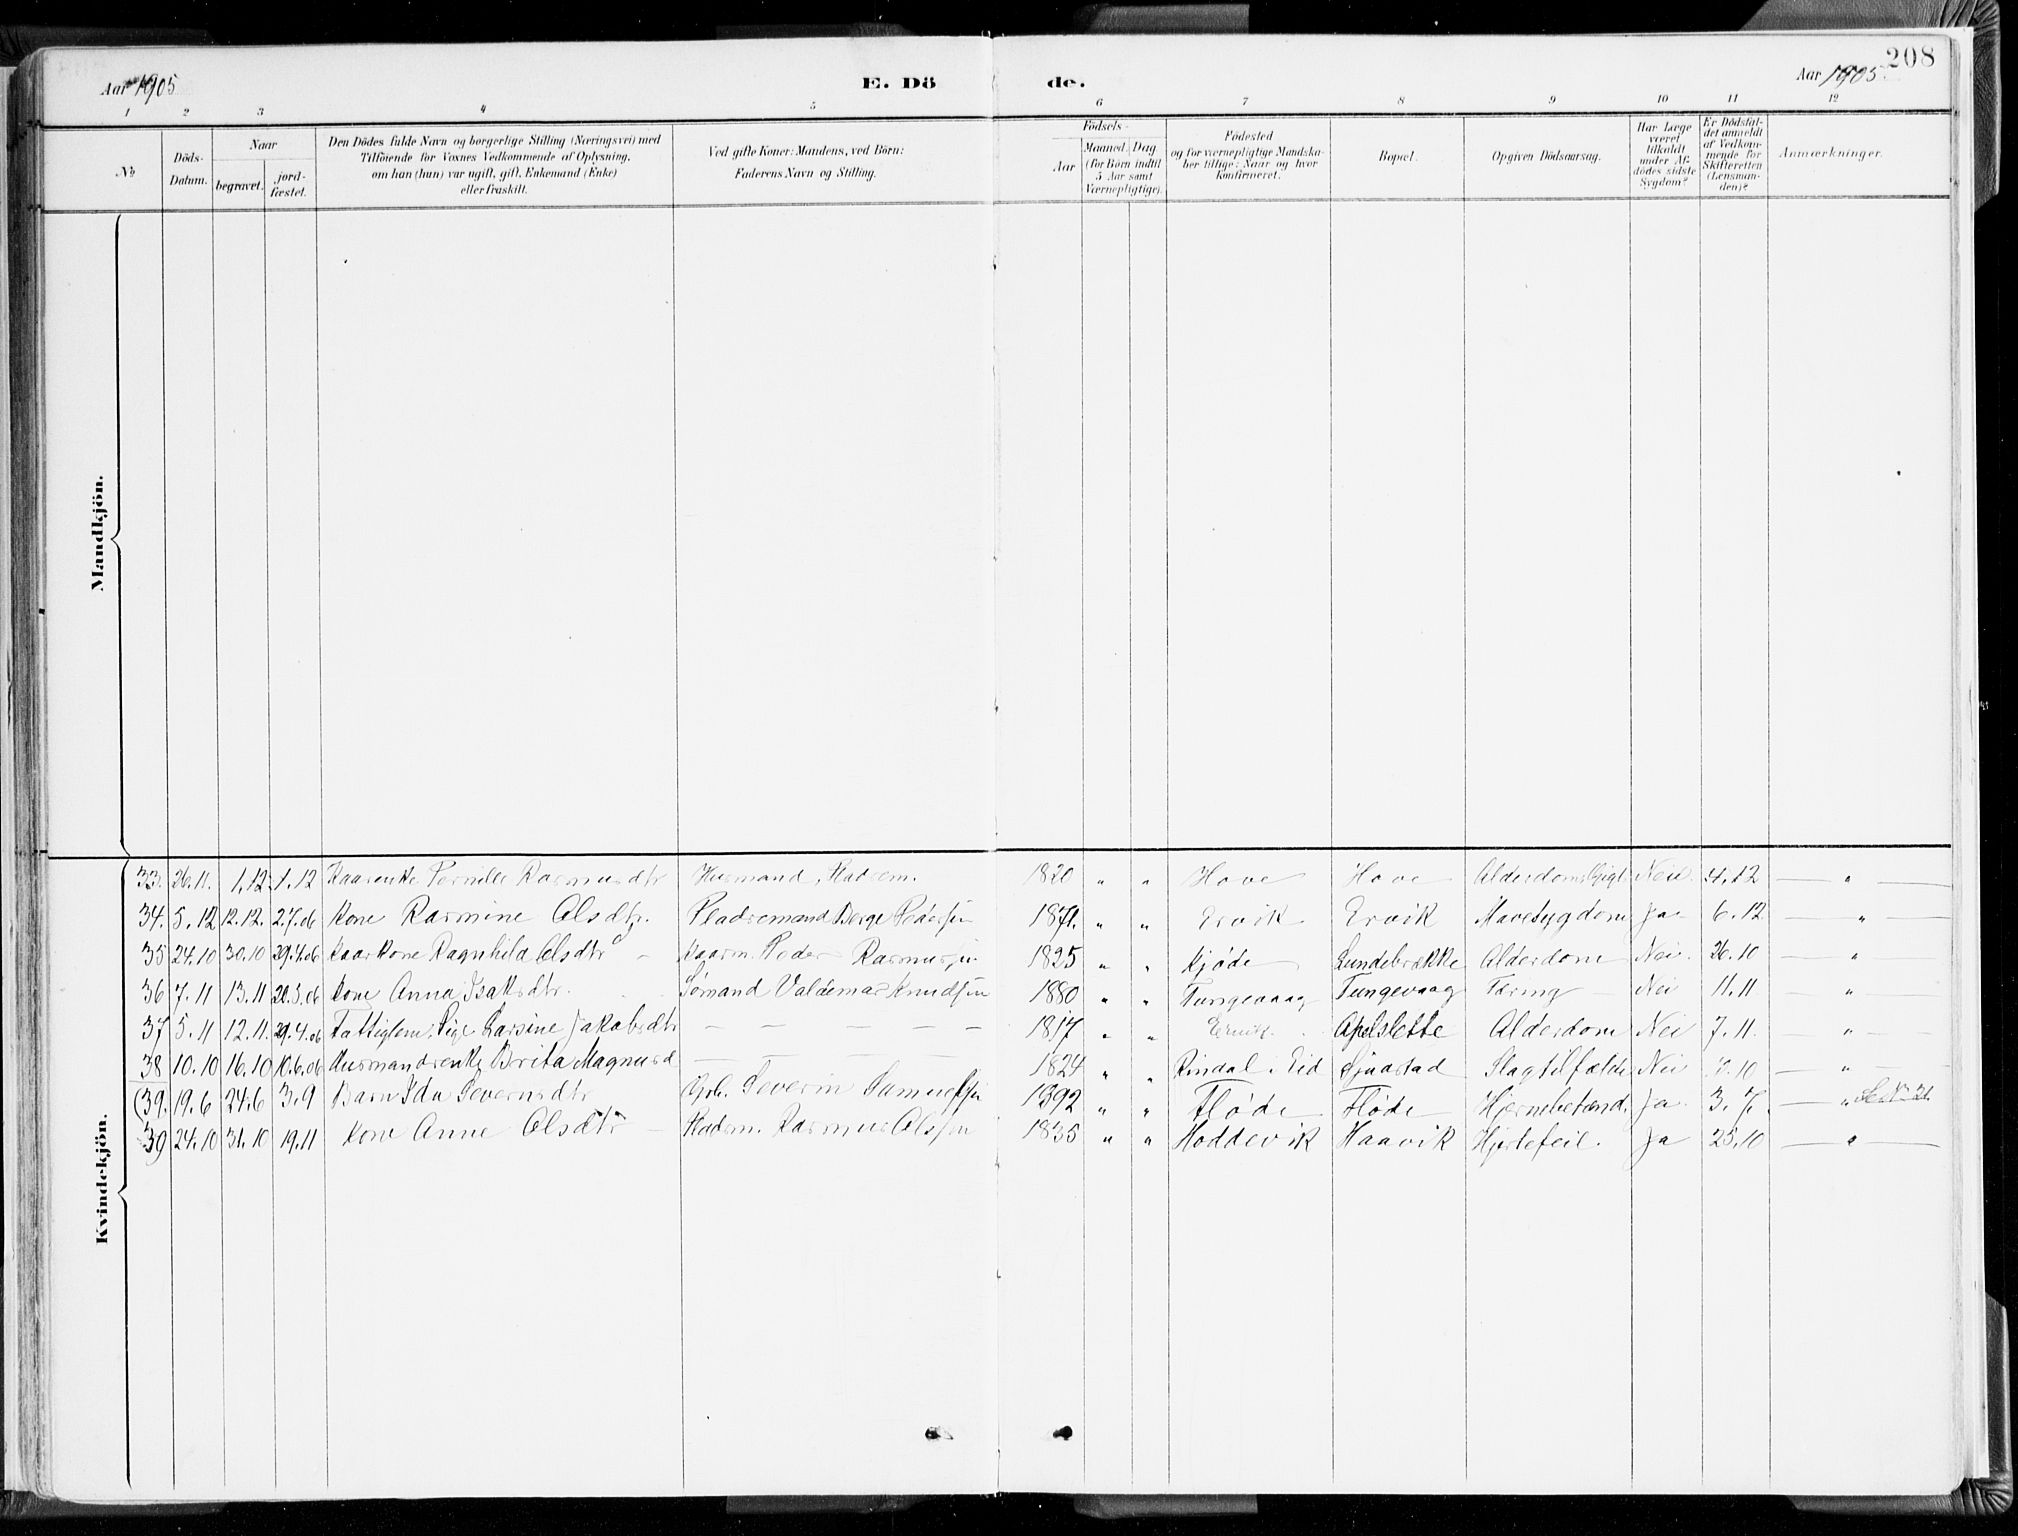 208
Aar 1905
E. Dö
de.
Aar 1905
1 2 3 4 5 6 7 8 9 10 11 12
No
Döds-Datum.
Naar
begravet.
jord-fæstet.
Den Dödes fulde Navn og borgerlige Stilling (Næringsvei) med
Tilföiende for Voxnes Vedkommende af Oplysning,
om han (hun) var ugift, gift, Enkemand (Enke)
eller fraskilt.
Ved gifte Koner: Mandens, ved Börn:
Faderens Navn og Stilling.
Födsels-
Aar
Maaned. Dag
(for Børn indtil
5 Aar samt
Værnepligtige).
Födested
og for værnepligtige Mandska-
ber tillige: Naar og hvor
konfirmeret.
Bopæl.
Opgiven Dödsaarsag.
Har Læge
været
tilkaldt
under Af-
dödes sidste
Sygdom?
Er Dödsfal-
det anmeldt
af Vedkom-
mende for
Skifteretten
(Lensman-
den)?
Anmærkninger.
Mandkjön.
Kvindekjön.
33. 26.11. 1.12. 1.12 Kaarenke Pernille Rasmusdtr Husmand, Pladsem. 1820 " " Hove Hove Alderdom, Gigt Nei. 4.12 — " —
34. 5.12 12.12. 2.7.06 Kone Rasmine Olsdtr. Pladsemand Børge Pedersen 1871. " " Ervik Ervik Mavesygdom Ja 6.12 — " —
35 24.10 30.10 29.4.06 Kaarkone Ragnhild Olsdtr — Kaarm. Peder Rasmussen 1825 " " Kjøde Lundebrekke Alderdom Nei. 26.10 — "
36 7.11 13.11 20.5.06 Kone Anna Isaksdtr. Sømand Valdemar Knudsen 1880 " " Tungevaag Tungevaag Tæring Nei 11.11 — " —
37 5.11 12.11. 29.4.06 Fattiglem, Pige Larsine Jakobsdtr — — — — — 1817 " " Ervik Apelslette Alderdom Nei 7.11. — " —
38 10.10 16.10 10.6.06 Husmandsenke Brita Magnusd — — — — 1824 " " Rindal i Eid Sjaastad Slagtilfælde Nei .10 — " —
(39. 19.6 24.6 3.9 Barn Ida Severinsdtr Gbr. Severin Samuelsen 1892 " " Fløde Fløde Hjernebetænd. Ja 3.7. — " Se No 21
39 24.10 31.10 19.11 Kone Anne Olsdtr — Pladsm. Rasmus Olsen 1835 " " Hoddevik Haavik Hjertefeil. Ja 25.10 — " —